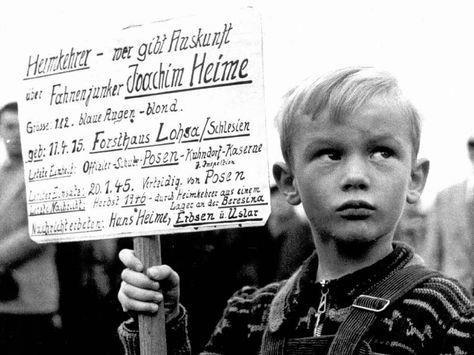 Heimkehrer - wer gibt Auskunft
über Fahnenjunker Joachim Heime
Grösse: 1.82. blaue Augen - blond.
geb: 11.4.25. Forsthaus Lohsa/Schlesien
Letzte Einheit: Offizier-Schule-Posen-Kuhndorf-Kaserne
2. Inspektion
Letzter Einsatz: 20.1.45. Verteidig. von Posen
Letzte Nachricht: Herbst durch Heimkehrer aus einem
Lager an der Beresina
Nachricht erbeten: Hans Heime, Erbsen ü. Uslar